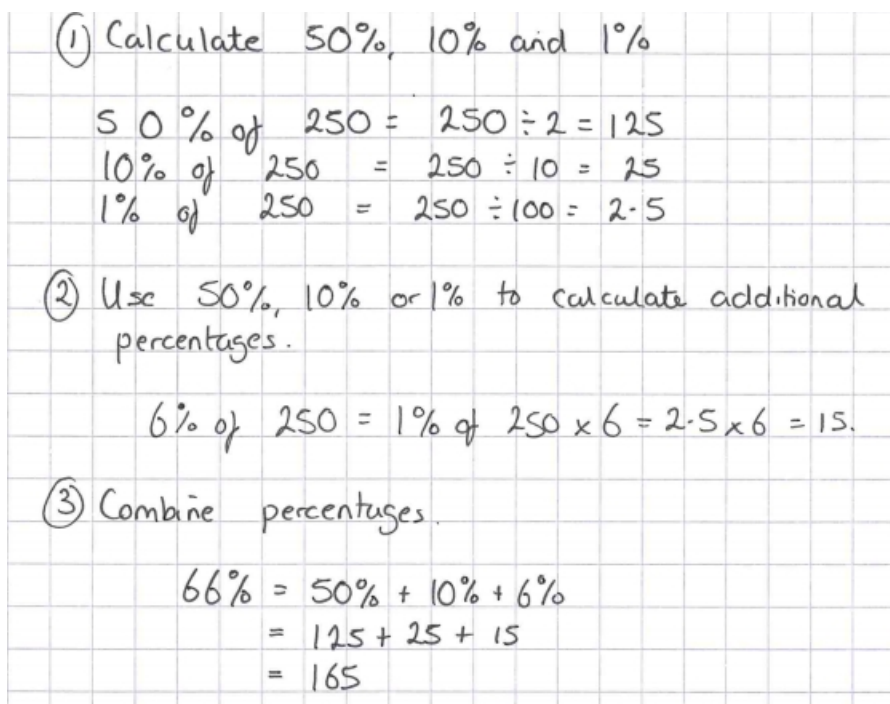 ① Calculate 50%, 10% and 1%
50% of 250 = 250 ÷ 2 = 125
10% of 250 = 250 ÷ 10 = 25
1% of 250 = 250 ÷ 100 = 2.5
② Use 50%, 10% or 1% to calculate additional
percentages.
6% of 250 = 1% of 250 x 6 = 2.5 x 6 = 15.
③ Combine percentages.
66% = 50% + 10% + 6%
= 125 + 25 + 15
= 165